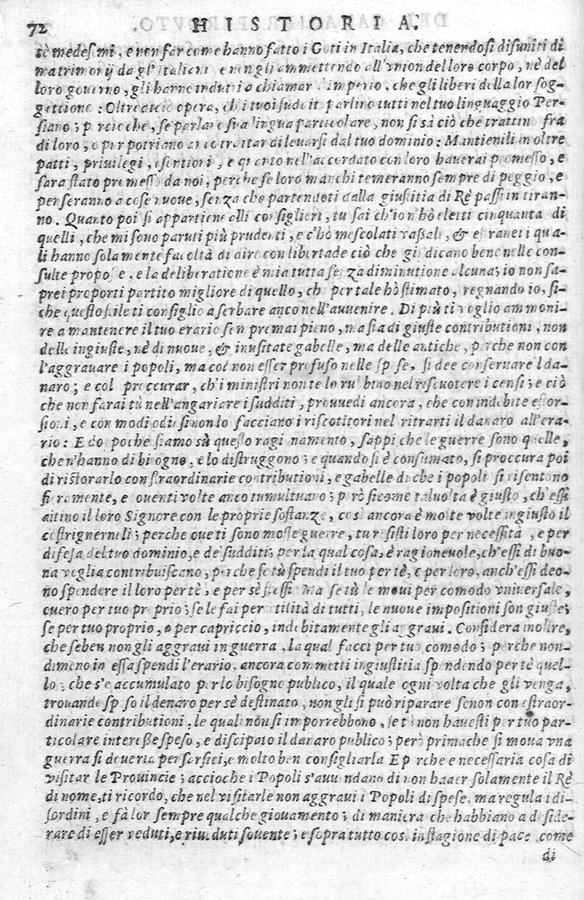 72 HISTORIA.
sè medesimi, e non far come hanno fatto i Goti in Italia, che tenendosi disuniti di
matrimonij da gl'italiani e non gli ammettendo all'vnion del loro corpo, nè del
loro gouerno, gli hanno indutti a chiamar l'imperio, che gli liberi della lor sog-
gettione: Oltre a ciò opera, che i tuoi sudditi parlino tutti nel tuo linguaggio Per-
siano; percioche, se parlano sua lingua particolare, non si sà ciò che trattino frà
di loro, e per potriano anco trattar di leuarsi dal tuo dominio: Mantienili in oltre
patti, priuilegi, esentioni, e quanto nell'accordato con loro hauerai promesso, e
sarà stato promesso da noi, perche se loro manchi temeranno sempre di peggio, e
penseranno a cose nuoue, senza che partendoti dalla giustitia di Rè passi in tiran-
no. Quanto poi si appartiene alli consiglieri, tu sai ch'io n'hò eletti cinquanta di
quelli, che mi sono paruti più prudenti, e c'hò mescolati vassali, & estranei i qua-
li hanno solamente facoltà di dire con libertade ciò che giudicano bene nelle con-
sulte proposte, e la deliberatione è mia tutta senza diminutione alcuna; io non sa-
prei proporti partito migliore di quello, che per tale hò stimato, regnando io, si-
che questo stile ti consiglio a serbare anco nell'auuenire. Di più ti voglio ammoni-
re a mantenere il tuo erario sempremai pieno, ma sia di giuste contributioni, non
delle ingiuste, nè di nuoue, & inusitate gabelle, ma delle antiche, perche non con
l'aggrauare i popoli, ma col non esser profuso nelle spese, si dee conseruare l da-
naro; e col proccurar, ch'i ministri non te lo rubbino nel riscuotere i censi; e ciò
che non farai tù nell'angariare i sudditi, prouuedi ancora, che con indebite estor-
sioni, e con modi odiosi non lo facciano i riscotitori nel ritrarti il danaro all'era-
rio: E do poche siamo sù questo ragi namento, sappi che le guerre sono quelle,
che n'hanno di bisogno, e lo distruggono; e quando si è consumato, si proccura poi
di ristorarlo con straordinarie contributioni, e gabelle di che i popoli si risentono
si ramente, e souenti volte anco tumultuano; però sicome taluolta è giusto, ch'essi
aitino il loro Signore con le proprie sostanze, così ancora è molte volte ingiusto il
costrignerneli; perche oue ti sono mosse guerre, tu resisti loro per necessità, e per
difesa del tuo dominio, e de' sudditi; per la qual cosa, è ragioneuole, ch'essi di buo-
na voglia contribuiscano, perche se tù spendi il tuo per tè, e per loro, anch'essi deo-
no spendere il loro per tè, e per sè stessi Ma se tù le moui per comodo vniuersale,
ouero per tuo proprio; se le fai per vtilità di tutti, le nuoue impositioni son giuste;
se per tuo proprio, o per capriccio, indebitamente gli aggraui. Considera inoltre,
che seben non gli aggraui in guerra, la qual facci per tuo comodo; perche non-
dimeno in essa spendi l'erario, ancora commetti ingiustitia spendendo per tè quel-
lo; che s'è accumulato per lo bisogno publico, il quale ogni volta che gli venga,
trouando speso il denaro per sè destinato, non gli si può riparare senon con estraor-
dinarie contributioni, le quali non si imporrebbono, se tù non hauesti per tuo par-
ticolare interesse speso, e discipato il danaro publico; però prima che si moua vna
guerra si deueria pensarsici, e molto ben consigliarla E perche e necessaria cosa di
visitar le Prouincie; accioche i Popoli s'auuedano di non hauer solamente il Rè
di nome, ti ricordo, che nel visitarle non aggraui i Popoli di spese, ma regula i di-
sordini, e fà lor sempre qualche giouamento; di maniera che habbiano a deside-
rare di esser veduti, e riueduti souente; e sopra tutto così in stagione di pace come
di